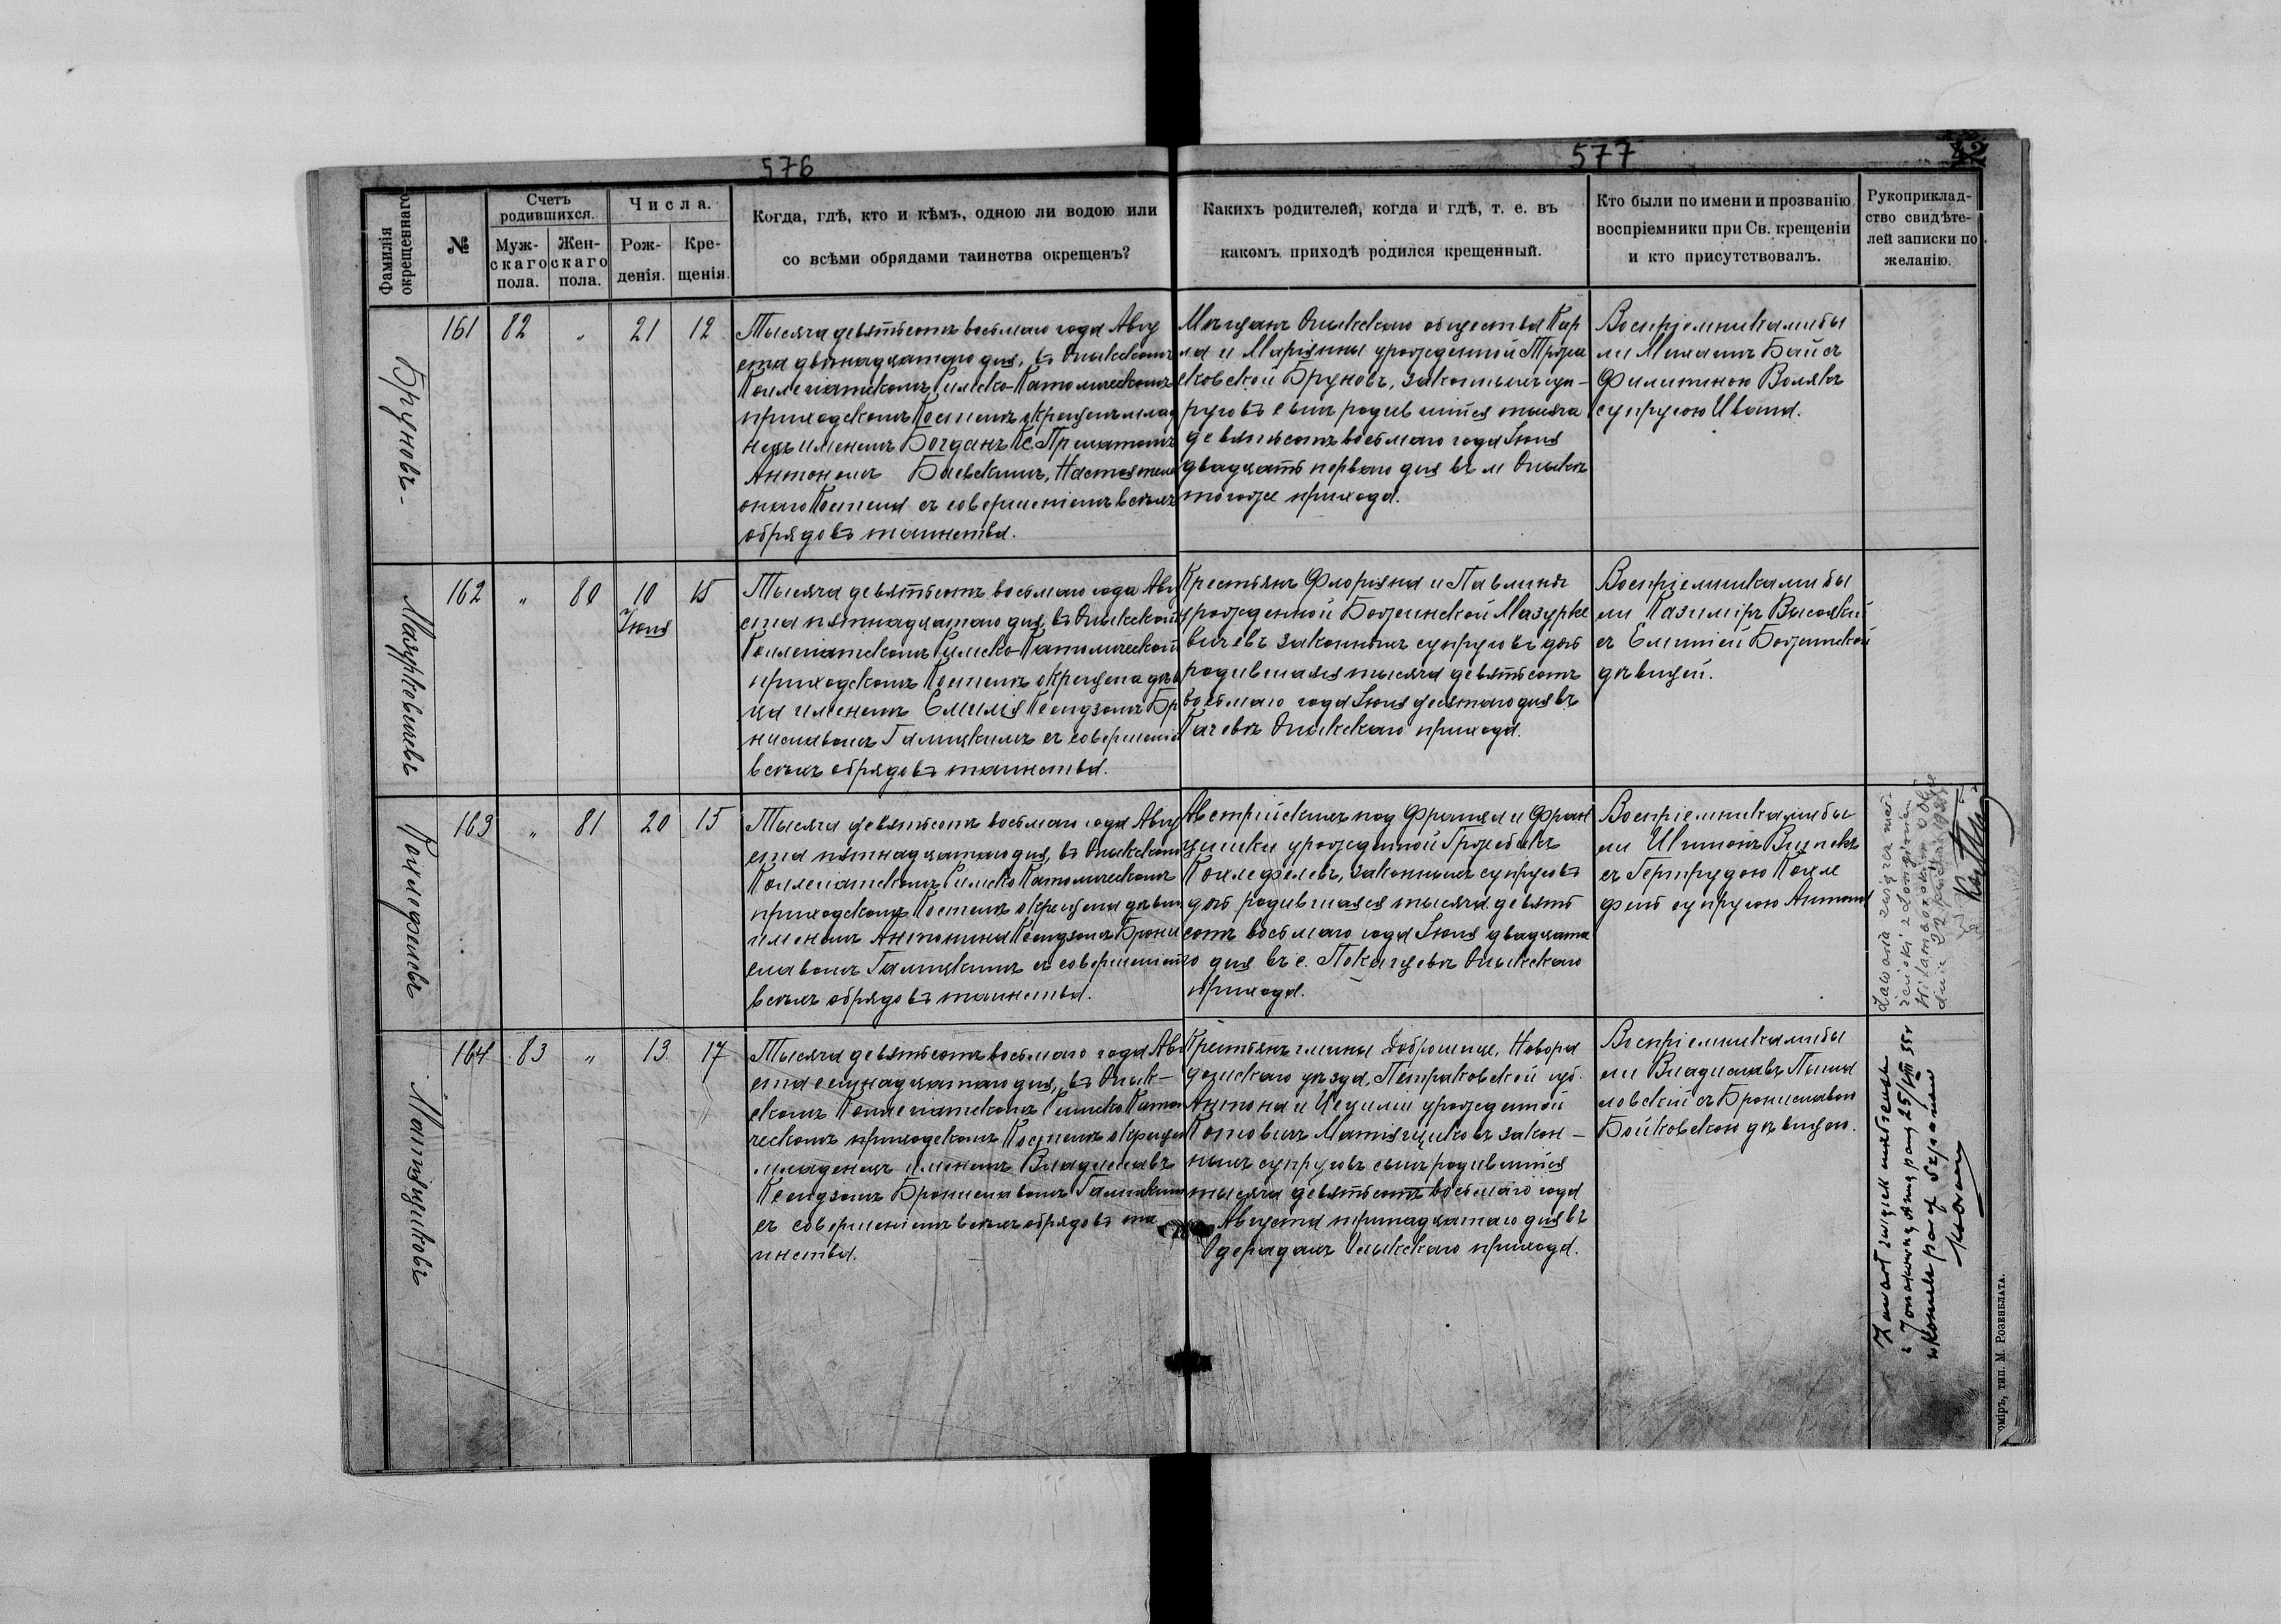 576
577
42
Фамилія окрещеннаго
№
Счетъ родившихся.
Муж-
скаго
пола.
Жен-
скаго
пола.
Числа.
Рож-
денія.
Кре-
щенія.
Когда, гдѣ, кто и кѣмъ, одною ли водою или
со всѣми обрядами таинства окрещенъ?
Какихъ родителей, когда и гдѣ, т. е. въ
какомъ приходѣ родился крещенный.
Кто были по имени и прозванію
воспріемники при Св. крещеніи
и кто присутствовалъ.
Рукоприклад-
ство свидѣте-
лей записки по
желанію.
Бруновъ-
161
82
„
21
12
Тысяча девятьсотъ восьмаго года Авгу
ста двѣнадцатаго дня, въ Олыкскомъ
Коллегіатскомъ Римско-Католическомъ
приходскомъ Костелѣ окрещенъ млад
нецъ именемъ Богданъ Кс. Прелатомъ
Антономъ Баевскимъ, Настоятеле
онаго Костела съ совершеніемъ всѣхъ
обрядовъ таинства.
Мѣщанъ Олыкскаго общества Кар
ла и Маріянны урожденной
Бруновъ, законныхъ суп-
руговъ сынъ родившійся тысяча
девятьсотъ восьмаго года Іюня
двадцать перваго дня въ м Олыкѣ
того же прихода.
Воспріемниками бы
ли Михаилъ Байсъ
Филипиною Волякъ
супругою Ивана.
Мазуркевичевъ
162
„
80
10
Іюня
15
Тысяча девятьсотъ восьмаго года Авгу
ста пятнадцатаго дня, въ Олыкскомъ
Коллегіатскомъ Римско-Католической
приходскомъ Костелѣ окрещена дѣв
ца именемъ Емилія Ксендзомъ Бр
ниславомъ Галицкимъ съ совершені
всѣхъ обрядовъ таинства.
Крестьянъ Флоріяна и Павлины
урожденной Божинской Мазурке
вичевъ законныхъ супруговъ дочь
родившаяся тысяча девятьсотъ
восьмаго года Іюня десятаго дня въ
Качевѣ Олыкскаго прихода.
Воспріемниками бы
ли Казиміръ Высоцкій
съ Емиліей Божинской
дѣвицей.
163
„
81
20
15
Тысяча девятьсотъ восьмаго года Авгу
ста пятнадцатаго дня, въ Олыкскомъ
Коллегіатскомъ Римско Католическомъ
приходскомъ Костелѣ окрещена дѣвиц
именемъ Антонина Ксендзомъ Брони
славомъ Галицкимъ съ совершеніемъ
всѣхъ обрядовъ таинства.
Австрійскихъ под Франца и Фран
цишки урожденной
законныхъ супруговъ
дочь родившаяся тысяча девять
сотъ восьмаго года Іюня двадцата
го дня въ с. Покащевѣ Олыкскаго
прихода.
Воспріемниками бы
ли
съ Гертрудою
супругою Антона
Матіящуковъ
164
83
„
13
17
Тысяча девятьсотъ восьмаго года Авг
ста семнадцатаго дня, въ Олык-
скомъ Коллегіатскомъ Римско Катол
ческомъ приходскомъ Костелѣ окрещен
младенецъ именемъ Владиславъ
Ксендзомъ Брониславомъ Галицким
съ совершеніемъ всѣхъ обрядовъ та
инства.
Крестьянъ гмины Доброшице, Новора
домскаго уѣзда, Петраковской губ.
Антона и Цециліи урожденной
закон-
ныхъ супруговъ сынъ родившійся
тысяча девятьсотъ восьмаго года
Августа тринадцатаго дня въ
Одерадахъ Олыкскаго прихода.
Воспріемниками бы
ли Владиславъ
съ Брониславою
Бойковскою дѣвицею.
Zawarła związek mał-
żeński z
Zawarł związek małżeński
25/VIII 35r
оміръ, тип. М. Розенблата.